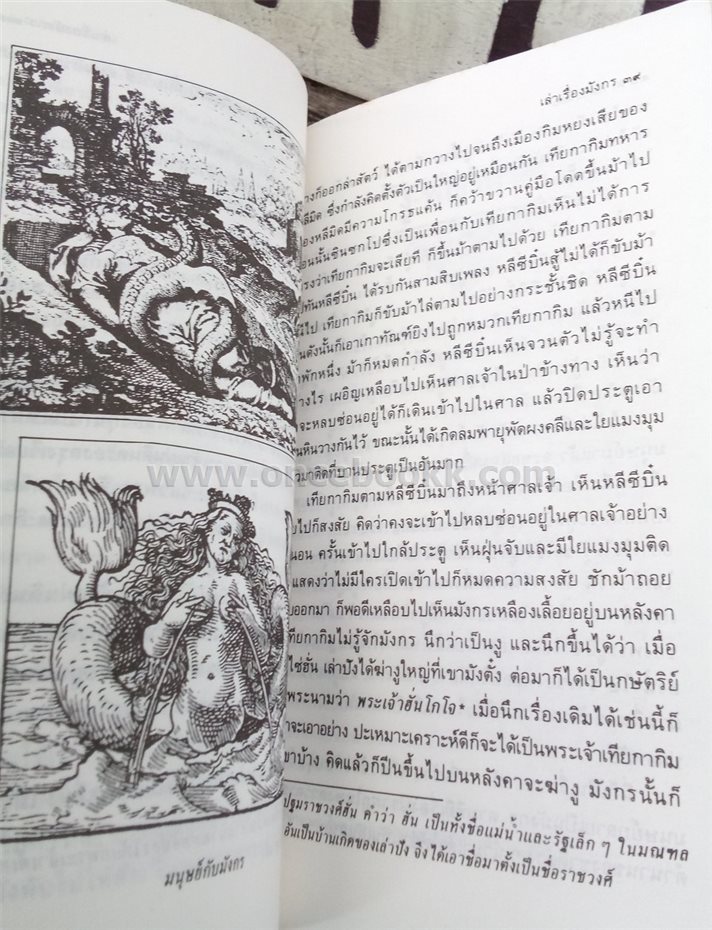 มนุษย์กับมังกร
เล่าเรื่องมังกร ๓๙
างก็ออกล่าสัตว์ ได้ตามกวางไปจนถึงเมืองกิมหยงเสียของ
หลีมิด ซึ่งกำลังคิดตั้งตัวเป็นใหญ่อยู่เหมือนกัน เทียกากิมทหาร
องหลีมิดมีความโกรธแค้น ก็คว้าขวานคู่มือโดดขึ้นม้าไป
อนนั้นซินซกโปซึ่งเป็นเพื่อนกับเทียกากิมเห็นไม่ได้การ
รงว่าเทียกากิมจะเสียที ก็ขึ้นม้าตามไปด้วย เทียกากิมตาม
ปทันหลีซีบิ๋น ได้รบกันสามสิบเพลง หลีซีบิ๋นสู้ไม่ได้ก็ขับม้า
นีไป เทียกากิมก็ขับม้าไล่ตามไปอย่างกระชั้นชิด หลีซีบิ๋น
นดังนั้นก็เอาเกาทัณฑ์ยิงไปถูกหมวกเทียกากิม แล้วหนีไป
าพักหนึ่ง ม้าก็หมดกำลัง หลีซีบิ๋นเห็นจวนตัวไม่รู้จะทำ
างไร เผอิญเหลือบไปเห็นศาลเจ้าในป่าข้างทาง เห็นว่า
าจะหลบซ่อนอยู่ได้ก็เดินเข้าไปในศาล แล้วปิดประตูเอา
นหินวางกันไว้ ขณะนั้นได้เกิดลมพายุพัดผงคลีและใยแมงมุม
วมาติดที่บานประตูเป็นอันมาก
www.onsebookk.com
เทียกากิมตามหลีซีบิ๋นมาถึงหน้าศาลเจ้า เห็นหลีซีบิ๋น
ยไปก็สงสัย คิดว่าคงจะเข้าไปหลบซ่อนอยู่ในศาลเจ้าอย่าง
นอน ครั้นเข้าไปใกล้ประตู เห็นฝุ่นจับและมีใยแมงมุมติด
แสดงว่าไม่มีใครเปิดเข้าไปก็หมดความสงสัย ชักม้าถอย
บออกมา ก็พอดีเหลือบไปเห็นมังกรเหลืองเลื้อยอยู่บนหลังคา
ทียกากิมไม่รู้จักมังกร นึกว่าเป็นงู และนึกขึ้นได้ว่า เมื่อ
ไซ่ฮั่น เล่าปังได้ฆ่างูใหญ่ที่เขามังตั๋ง ต่อมาก็ได้เป็นกษัตริย์
พระนามว่า พระเจ้าฮั่นโกโจ* เมื่อนึกเรื่องเดิมได้เช่นนี้ก็
าจะเอาอย่าง ปะเหมาะเคราะห์ดีก็จะได้เป็นพระเจ้าเทียกากิม
ขาบ้าง คิดแล้วก็ปีนขึ้นไปบนหลังคาจะฆ่างู มังกรนั้นก็
ปฐมราชวงศ์ฮั่น คำว่า ฮั่น เป็นทั้งชื่อแม่น้ำและรัฐเล็ก ๆ ในมณฑล
อันเป็นบ้านเกิดของเล่าปัง จึงได้เอาชื่อมาตั้งเป็นชื่อราชวงศ์